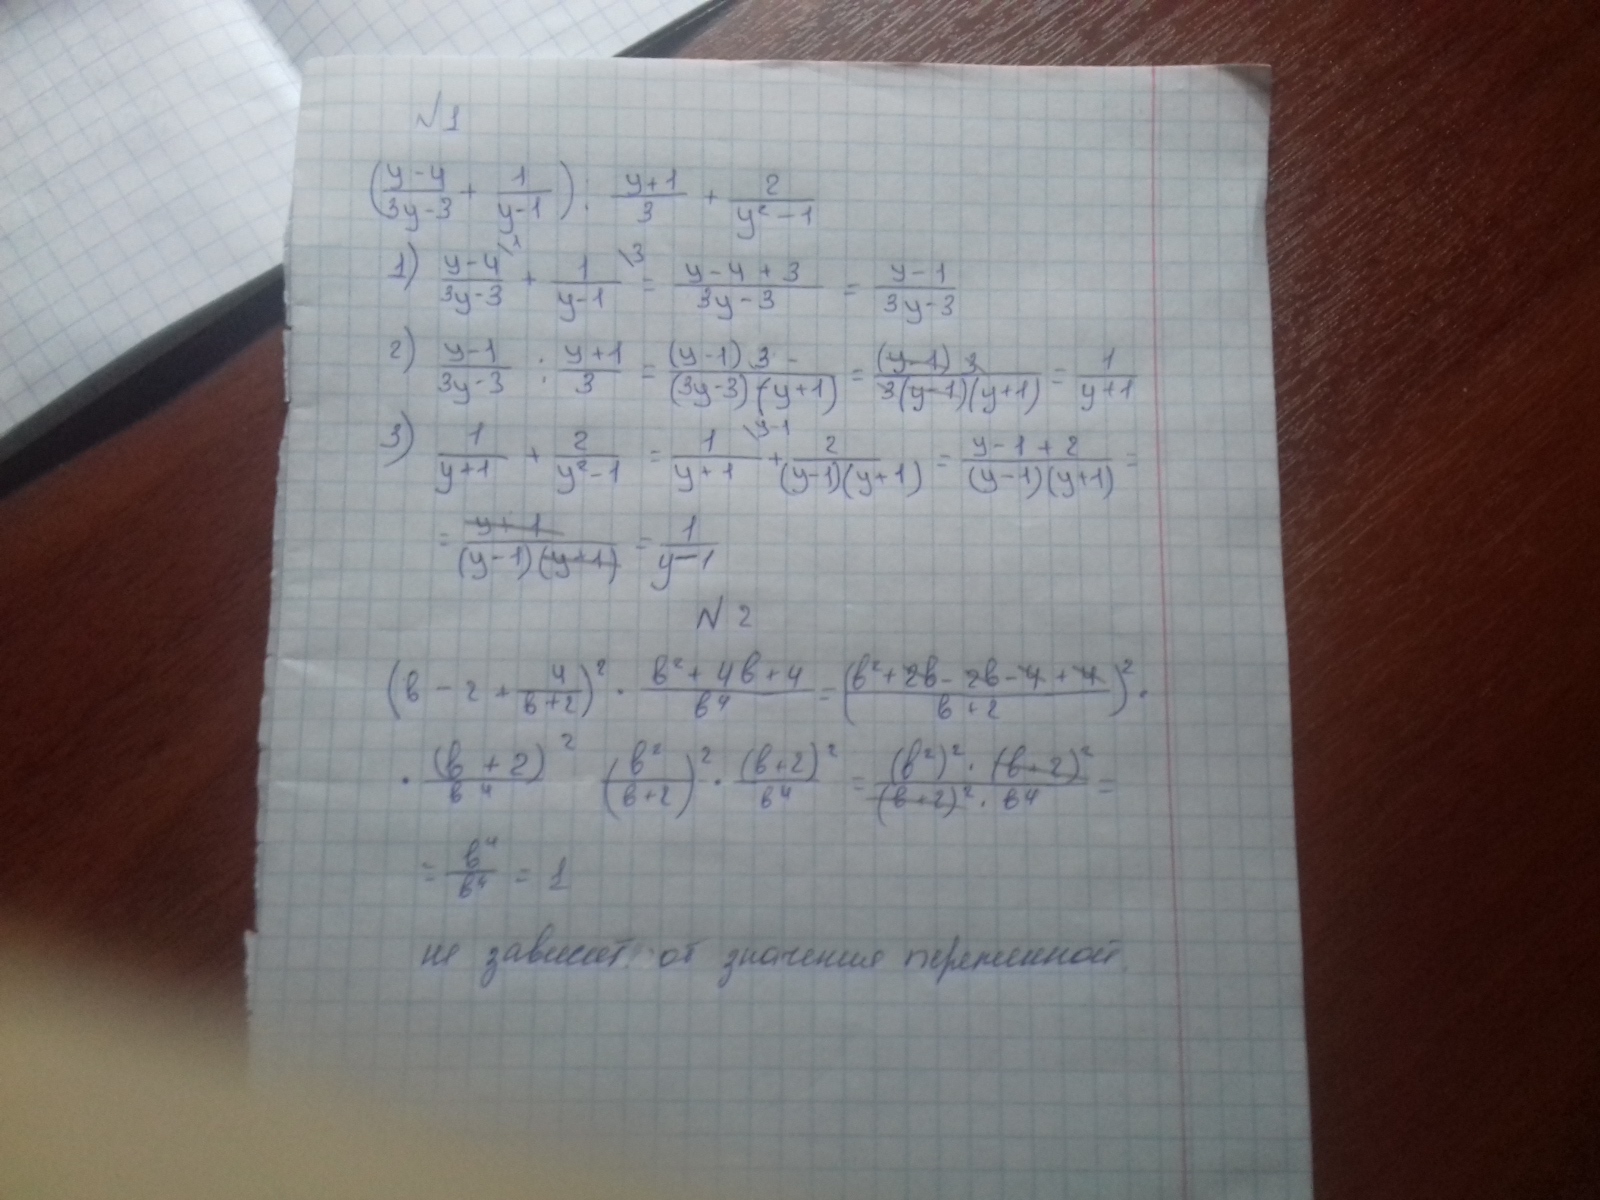 №1
(y-4/3y-3 + 1/y-1) : y+1/3 + 2/y²-1
1) y-4/3y-3 \1 + 1/y-1 \3 = y-4+3/3y-3 = y-1/3y-3
2) y-1/3y-3 : y+1/3 = (y-1)3/(3y-3)(y+1) = (y-1)3/3(y-1)(y+1) = 1/y+1
3) 1/y+1 + 2/y²-1 = 1/y+1 \y-1 + 2/(y-1)(y+1) = y-1+2/(y-1)(y+1) =
= y+1/(y-1)(y+1) = 1/y-1
№2
(в - 2 + 4/в+2)² · в²+4в+4/в⁴ = (в²+2в-2в-4+4/в+2)² ·
· (в+2)²/в⁴ (в²/в+2)² · (в+2)²/в⁴ = (в²)² · (в+2)²/(в+2)² · в⁴ =
= в⁴/в⁴ = 1
не зависит от значения переменной